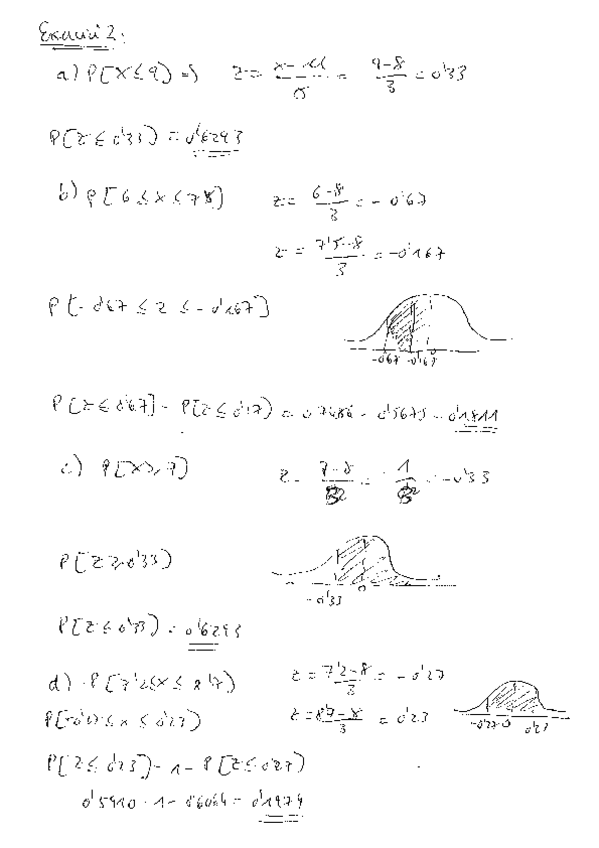 a) P[X ≤ 9) => z = x-μ/σ = 9-8/3 = 0'33
P[z ≤ 0'33) = 0'6293
b) P[6 ≤ x ≤ 7'5) z = 6-8/3 = -0'67
z = 7'5-8/3 = -0'167
P[-0'67 ≤ z ≤ -0'167]
-0'67 -0'167 0
P[z ≤ 0'67] - P[z ≤ 0'17) = 0'7486 - 0'5675 = 0'1811
c) P[X ≥ 7) z = 7-8/3 = -1/3 = -0'33
P[z ≥ -0'33)
-0'33 0
P[z ≤ 0'33) = 0'6293
d) P[7'2 ≤ x ≤ 8'7) z = 7'2-8/3 = -0'27
P[-0'27 ≤ x ≤ 0'23) z = 8'7-8/3 = 0'23
-0'27 0 0'23
P[z ≤ 0'23] - 1 - P[z ≤ 0'27)
0'5910 - 1 - 0'6064 = 0'1974